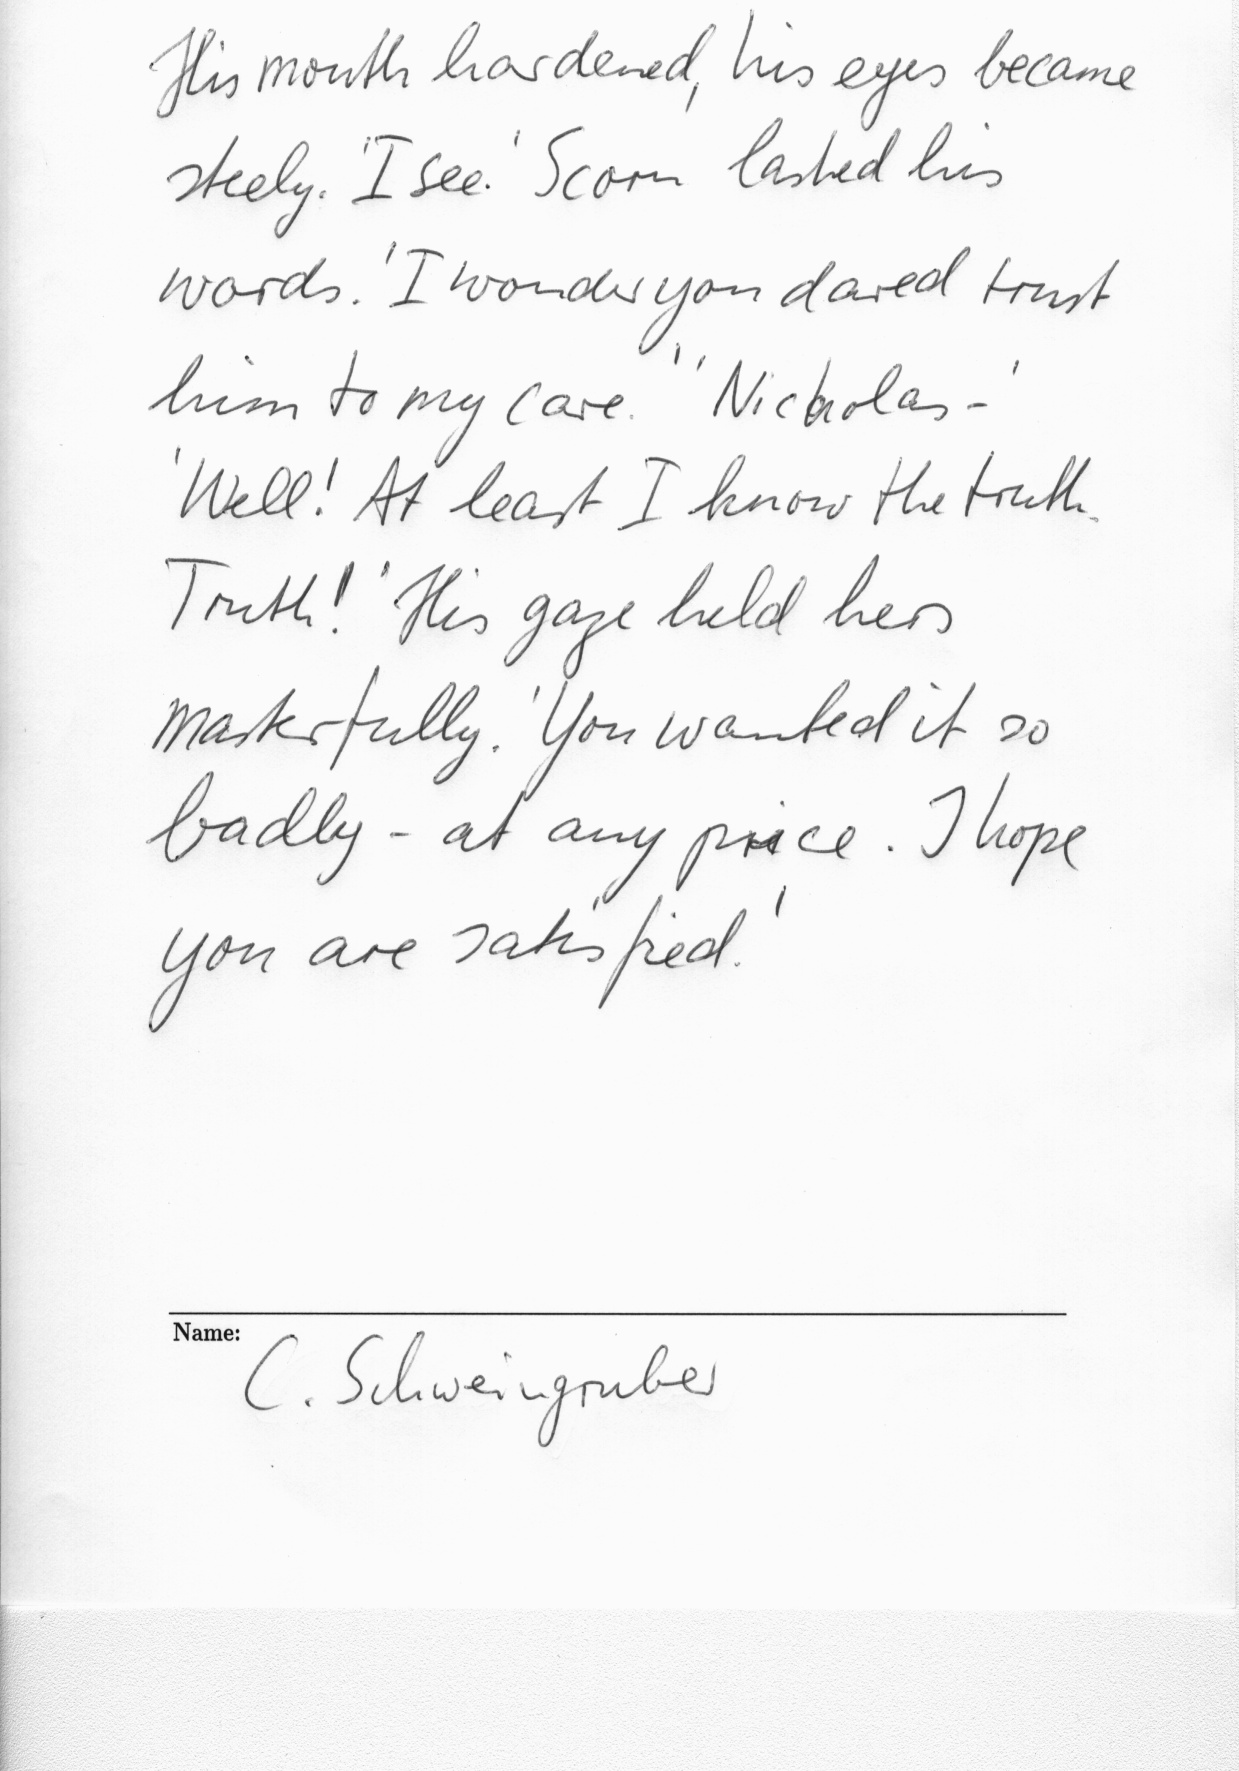 His mouth hardened, his eyes became
steely. 'I see.' Scorn lashed his
words. 'I wonder you dared trust
him to my care.' 'Nicholas -'
'Well! At least I know the truth.
Truth!' His gaze held hers
masterfully. 'You wanted it so
badly - at any price. I hope
you are satisfied.'
Name:
C. Schweingruber